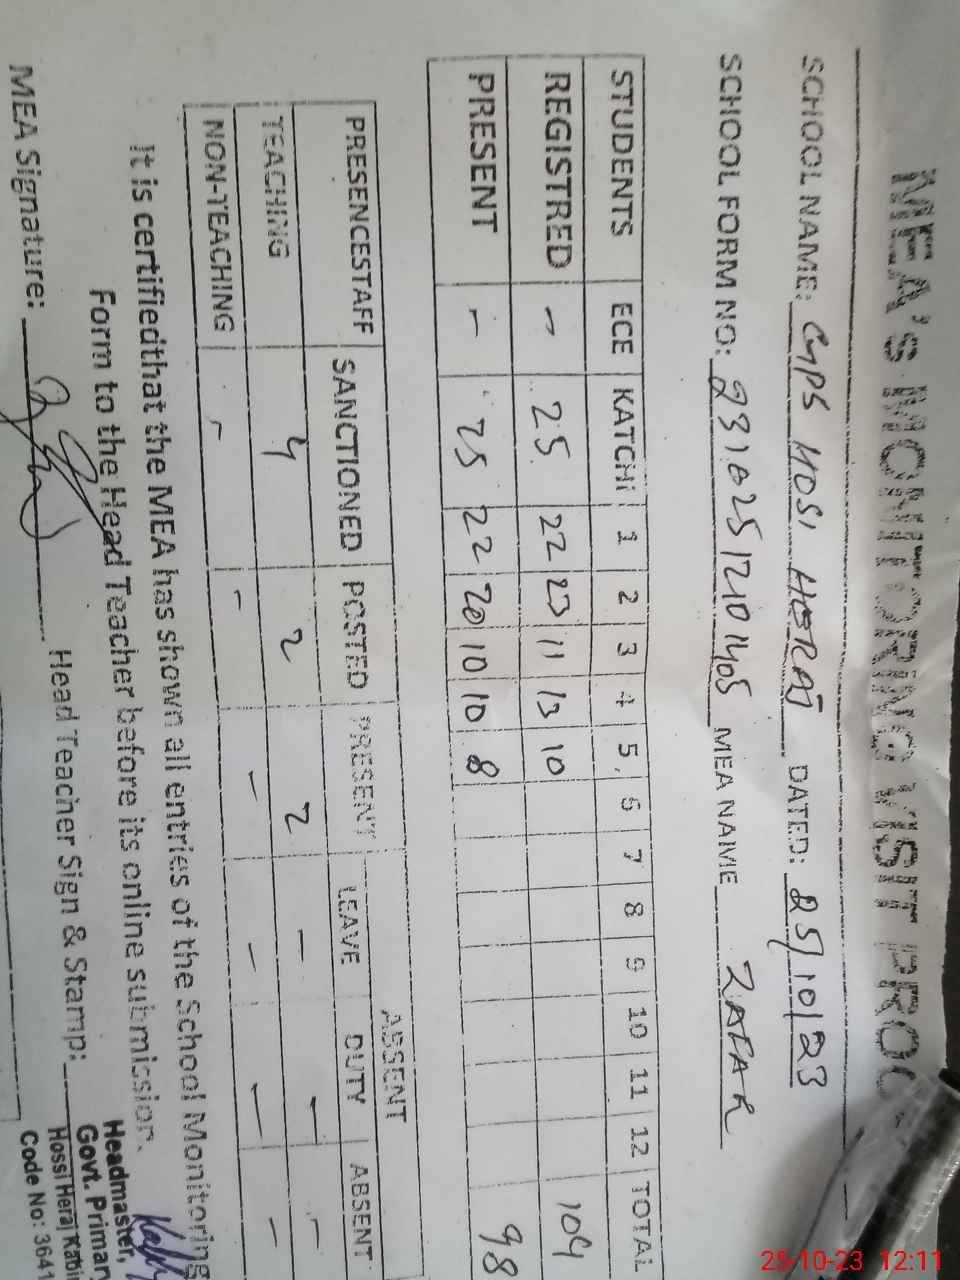 MEA'S MONITORING VISIT PRO
SCHOOL NAME: GMPS HOSI HERAJ DATED: 25/10/23
SCHOOL FORM NO: MEA NAME ZAFAR
STUDENTS ECE KATCHI 1 2 3 4 5 6 7 8 9 10 11 12 TOTAL
REGISTRED - 25 22 23 11 13 10 104
PRESENT - 25 22 20 10 10 8 98
ABSENT
PRESENCESTAFF SANCTIONED POSTED PRESENT LEAVE DUTY ABSENT
TEACHING 4 2 2 - - -
NON-TEACHING - - - - - -
It is certifiedthat the MEA has shown all entries of the School Monitoring
Form to the Head Teacher before its online submission.
MEA Signature: Head Teacher Sign & Stamp:
Headmaster,
Govt. Primary
Hossi Heraj Kabir
Code No: 3641
25-10-23 12:11